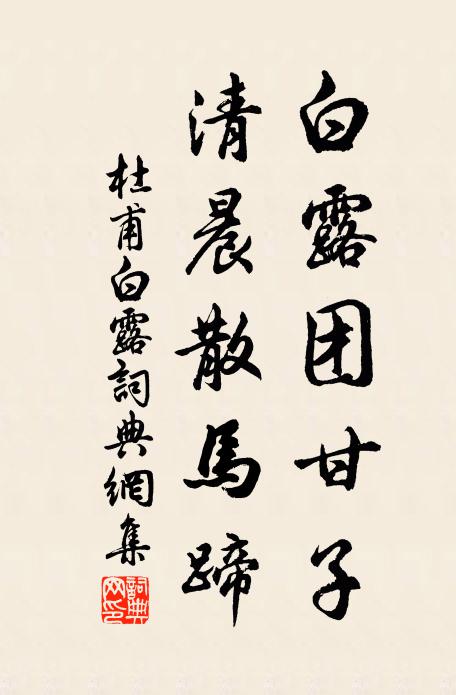 白露团甘子
清晨散馬蹄
杜甫白露詞典網集
詞典网印